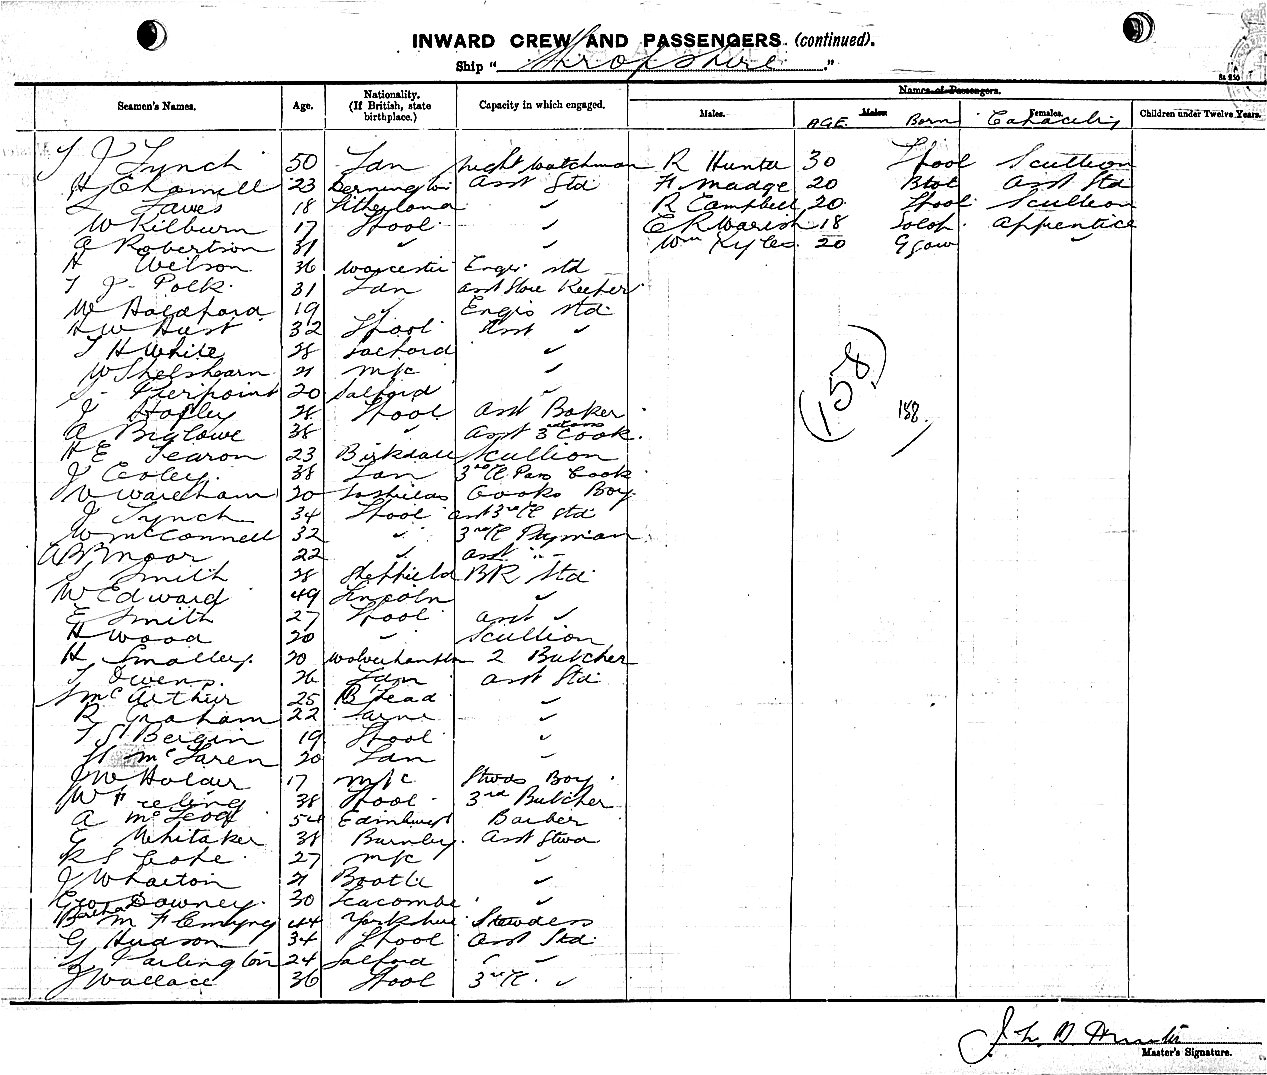 INWARD CREW AND PASSENGERS (continued).
Ship "Shropshire"
Seamen's Names. Age. Nationality. (If British, state birthplace.) Capacity in which engaged. Names of Passengers.
Males. AGE Males Born Females. Capacity Children under Twelve Years.
T J Lynch 50 Lan night watchman R Hunter 30 L'pool Scullion
H Chamell 23 asst Std F Madge 20 Btol asst Std
L Laves 18 Litherland ✓ R Campbell 20 L'pool Scullion
W Kilburn 17 L'pool ✓ E R Warish 18 apprentice
A Robertson 31 ✓ ✓ Wm Kyles 20 Ggow ✓
H Wilson 36 Worcester Engrs std
T J Polk 31 Lan asst Store Keeper
W Holdford 19 ✓ Engrs Std
H W Hust 32 L'pool Asst ✓
T H White 28 ✓
W Shelshearn 21 M/c ✓
S Pierpoint 20 Salford ✓
J Hopley 28 L'pool asst Baker
A Biglowe 38 ✓ asst 3rd class Cook
H E Searon 23 Birkdale Scullion
J Exley 38 Lan 3rd Cl Pass Cook
W Wareham 20 Cooks Boy
J Lynch 34 L'pool asst 3rd Cl Std
W McConnell 32 ✓ 3rd Cl Pyman
A B Moor 22 ✓ asst "
T Smith 28 Sheffield BR Std
W Edward 49 Lincoln ✓
E Smith 27 L'pool asst ✓
H Wood 20 ✓ Scullion
H Smalley 20 Wolverhampton 2 Butcher
T Owens 26 Lan asst Std
J McArthur 25 B Head ✓
R Graham 22 Larne ✓
T St Bergin 19 L'pool ✓
H McLaren 20 Lan ✓
J W Holder 17 M/c Stwds Boy
W Freling 38 L'pool 3rd Butcher
A McLeod 54 Edinburgh Barber
E Whitaker 38 Burnley asst Stwd
R S Leake 27 M/c ✓
J Wharton 21 Bootle ✓
Geo Downey 30 Seacombe ✓
Bertha M Flemyng 44 Yorkshire Stewdess
G Hudson 34 L'pool asst Std
L Partington 24 Salford " ✓
J Wallace 36 L'pool 3rd Cl ✓
(158)
188
Master's Signature.